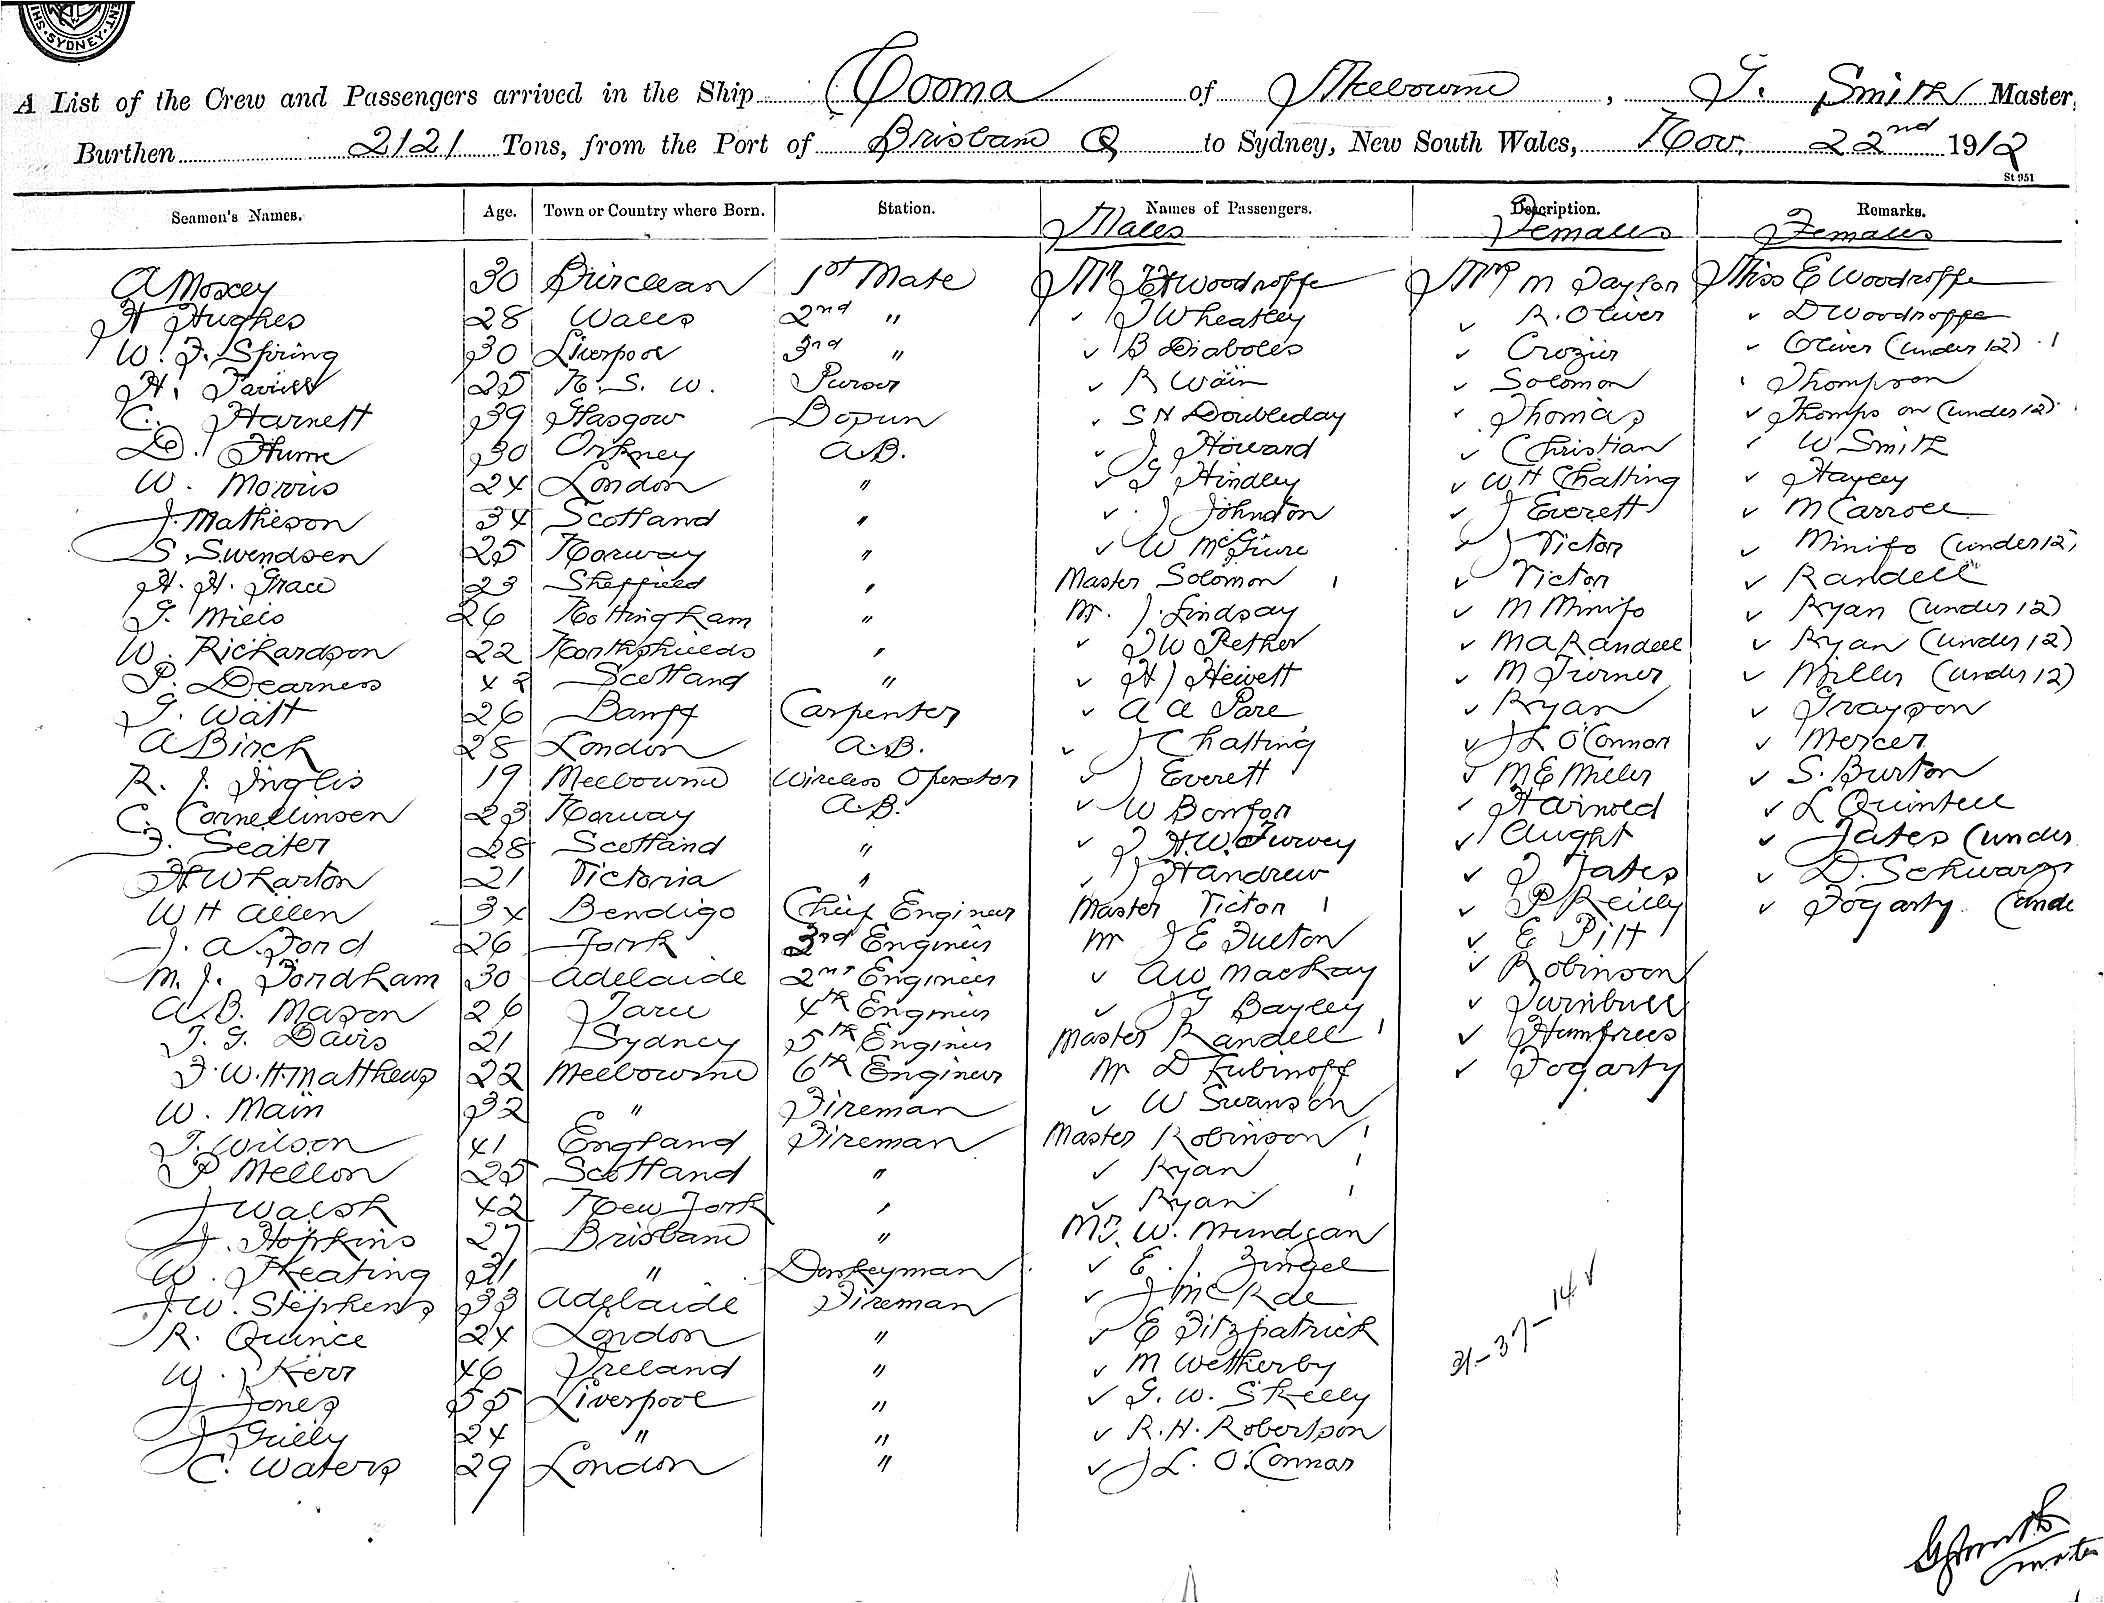 SYDNEY
A List of the Crew and Passengers arrived in the Ship Cooma of Melbourne, G. Smith Master,
Burthen 2121 Tons, from the Port of Brisbane Q to Sydney, New South Wales, Nov. 22nd 1912
St 951
Seamen's Names. Age. Town or Country where Born. Station. Names of Passengers. Description. Remarks.
Males Females Females
A Moxey 30 1st Mate Mr Woodroffe Mrs M Taylor Miss E Woodroffe
H Hughes 28 Wales 2nd " ✓ J Wheatley ✓ R. Oliver ✓ D Woodroffe
W. J. Spring 30 Liverpool 3rd " ✓ B Diaboles ✓ Crozier ✓ Oliver (under 12) 1
H. 25 N. S. W. Purser ✓ R Wain ✓ Solomon ' Thompson
C. Harnett 39 Glasgow Bosun ✓ S H Doubleday ✓ Thomas ✓ Thompson (under 12)
D. Hume 30 Orkney A.B. ✓ J. Howard ✓ Christian ✓ W Smith
W. Morris 24 London " ✓ G Hindley ✓ W H Chatting ✓ Hayley
J. Matheson 34 Scotland " ✓ J Johnston ✓ J Everett ✓ M Carroll
S. Swendsen 25 Norway " ✓ W McGuire ✓ J Victor ✓ Minifo (under 12)
H. H. Grace 23 Sheffield " Master Solomon 1 ✓ Victor ✓ Randell
G. Miels 26 Nottingham " Mr. J. Lindsay ✓ M Minifo ✓ Ryan (under 12)
W. Richardson 22 Northshields " ✓ J W Pether ✓ M A Randell ✓ Ryan (under 12)
P. Dearness 42 Scotland " ✓ H J Hewett ✓ M Turner ✓ Miller (under 12)
G. Watt 26 Banff Carpenter ✓ A A Pare ✓ Ryan ✓ Grayson
A Birch 28 London A.B. ✓ J Chatting ✓ J L O'Connor ✓ Mercer
R. J. Inglis 19 Melbourne Wireless Operator ✓ J Everett ✓ M E Miller ✓ S. Burton
C. Corneliunsen 23 Norway A.B. ✓ W Bonfon ✓ Harnold ✓ L Quintell
J. Seater 28 Scotland " ✓ J H. W. Furvey ✓ Aught ✓ Yates (under
H Wharton 21 Victoria " ✓ J Handrew ✓ J Yates ✓ D. Schwarz
W H Allen 34 Bendigo Chief Engineer Master Victor 1 ✓ P Reilly ✓ Fogarty (unde
J. A. Ford 26 York 3rd Engineer Mr J E Fulton ✓ E Pitt
M. J. Fordham 30 Adelaide 2nd Engineer ✓ A W Mackay ✓ Robinson
A. B. Mason 26 4th Engineer ✓ J G Bayley ✓ Turnbull
T. G. Davis 21 Sydney 5th Engineer Master Randell 1 ✓ Humfries
F. W. H. Matthews 22 Melbourne 6th Engineer Mr D Lubinoff ✓ Fogarty
W. Main 32 " Fireman ✓ W Swanson
T. Wilson 41 England Fireman Master Robinson 1
P Mellon 25 Scotland " ✓ Ryan 1
J Walsh 42 New York " ✓ Ryan 1
J. Hopkins 27 Brisbane " Mr. W. Mundgan
W. Keating 31 " Donkeyman ✓ E. J. Zingel
J. W. Stephens 33 Adelaide Fireman ✓ J McRae
R. Quince 24 London " ✓ E Fitzpatrick
W. J Kerr 46 Ireland " ✓ M Wetherby
J Jones 55 Liverpool " ✓ G. W. Skelly
J Gully 24 " " ✓ R. H. Robertson
C. Waters 29 London " ✓ J L. O'Connor
31-37-14 ✓
G Smith
master